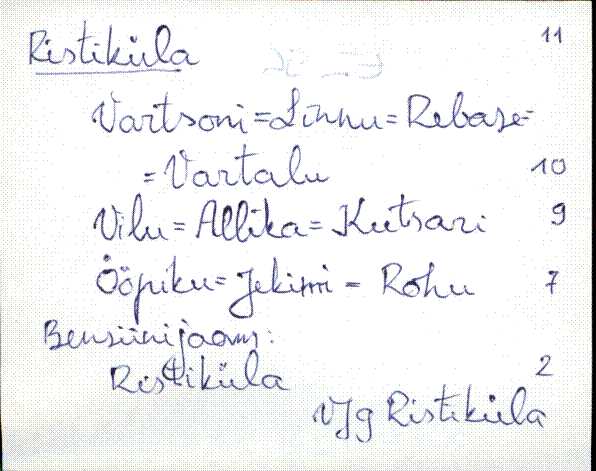 Ristiküla 11
Vartsoni=Linnu=Rebase=
=Vartalu 10
Vilu=Allika=Kutsari 9
Ööpiku=Jekimi= Rohu 7
Bensiinijaam:
Ristiküla 2
Vjg Ristiküla